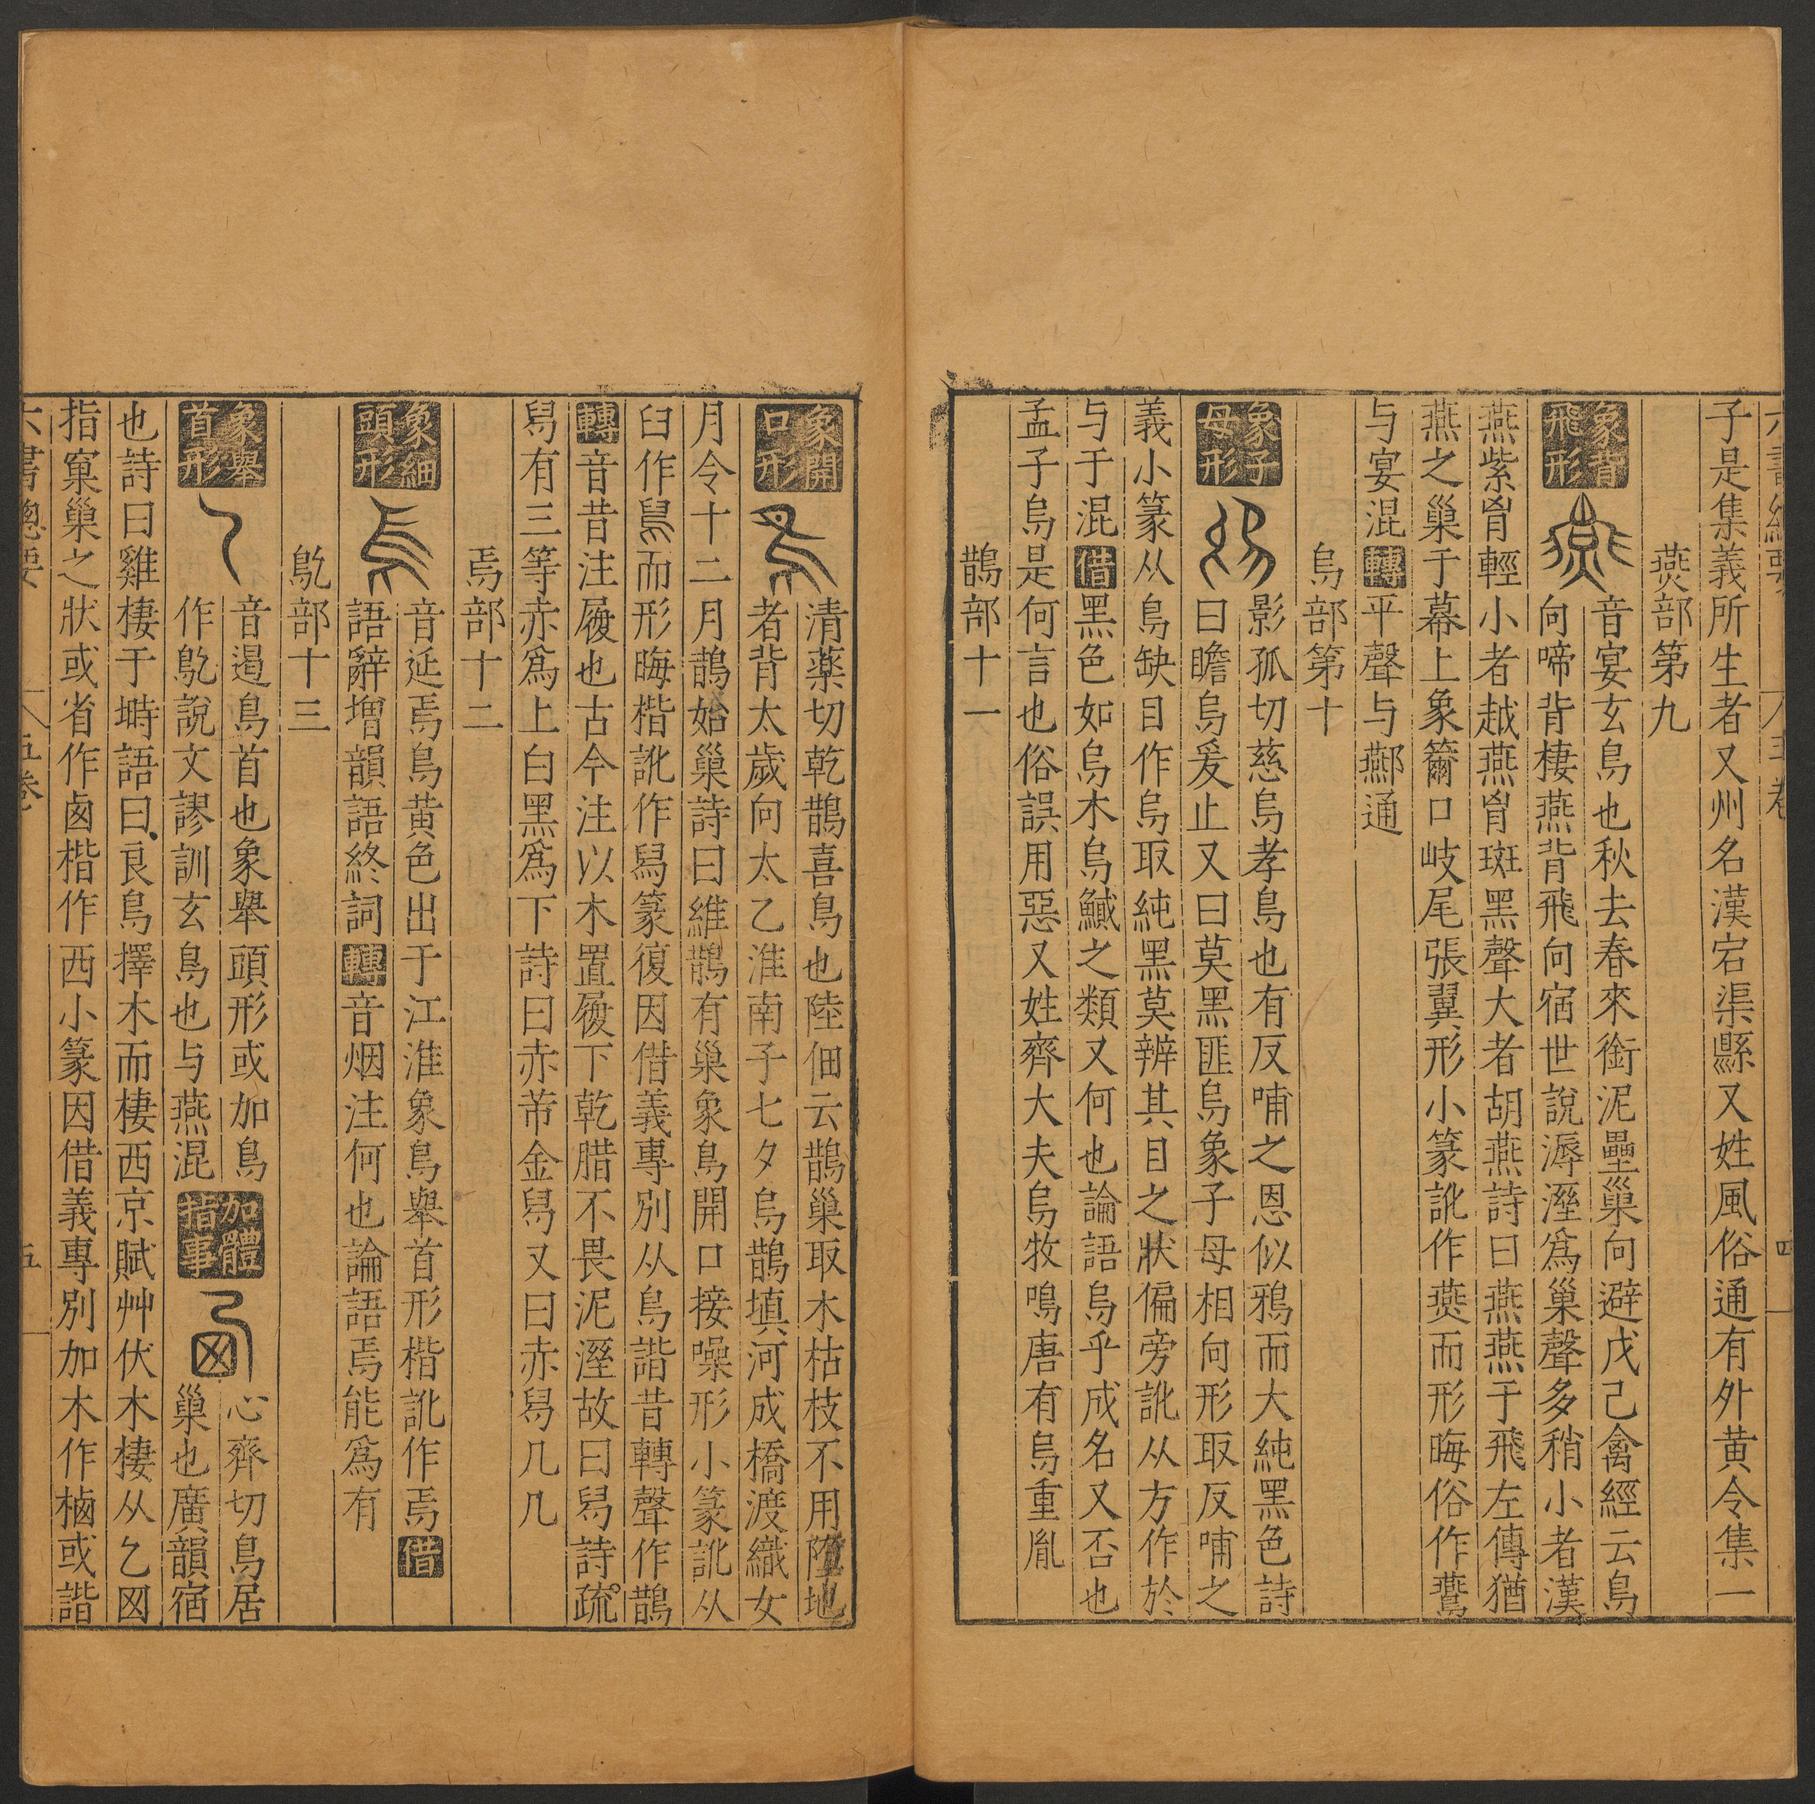 六書總要 五卷 四
子是集義所生者又州名漢宕渠縣又姓風俗通有外黄令集一
燕部第九
象背飛形 音宴玄鳥也秋去春來銜泥壘巢向避戊己禽經云鳥
向啼背棲燕背飛向宿世說溽溼為巢聲多稍小者漢
燕紫胷輕小者越燕胷斑黑聲大者胡燕詩曰燕燕于飛左傳猶
燕之巢于幕上象籋口岐尾張翼形小篆訛作燕而形晦俗作鷰
与宴混轉平聲与酀通
烏部第十
象子母形 影孤切慈烏孝鳥也有反哺之恩似鴉而大純黑色詩
曰瞻烏爰止又曰莫黑匪烏象子母相向形取反哺之
義小篆从鳥缺目作烏取純黑莫辨其目之狀偏旁訛从方作於
与于混借黑色如烏木烏鰂之類又何也論語烏乎成名又否也
孟子烏是何言也俗誤用惡又姓齊大夫烏牧鳴唐有烏重胤
鵲部十一
象開口形 清藥切乾鵲喜鳥也陸佃云鵲巢取木枯枝不用墮地
者背太歲向太乙淮南子七夕烏鵲填河成橋渡織女
月令十二月鵲始巢詩曰維鵲有巢象鳥開口接噪形小篆訛从
臼作舄而形晦楷訛作舄篆復因借義專別从鳥諧昔轉聲作鵲
轉音昔注履也古今注以木置履下乾腊不畏泥溼故曰舄詩疏
舄有三等赤為上白黑為下詩曰赤芾金舄又曰赤舄几几
焉部十二
象細頭形 音延焉鳥黄色出于江淮象鳥舉首形楷訛作焉借
語辭增韻語終詞轉音烟注何也論語焉能為有
鳦部十三
象舉首形 音遏鳥首也象舉頭形或加鳥
作鳦說文謬訓玄鳥也与燕混 加體指事 心齊切鳥居
巢也廣韻宿
也詩曰雞棲于塒語曰良鳥擇木而棲西京賦艸伏木棲从乞囟
指窠巢之狀或省作卥楷作西小篆因借義專別加木作㮨或諧
六書總要 五卷 五